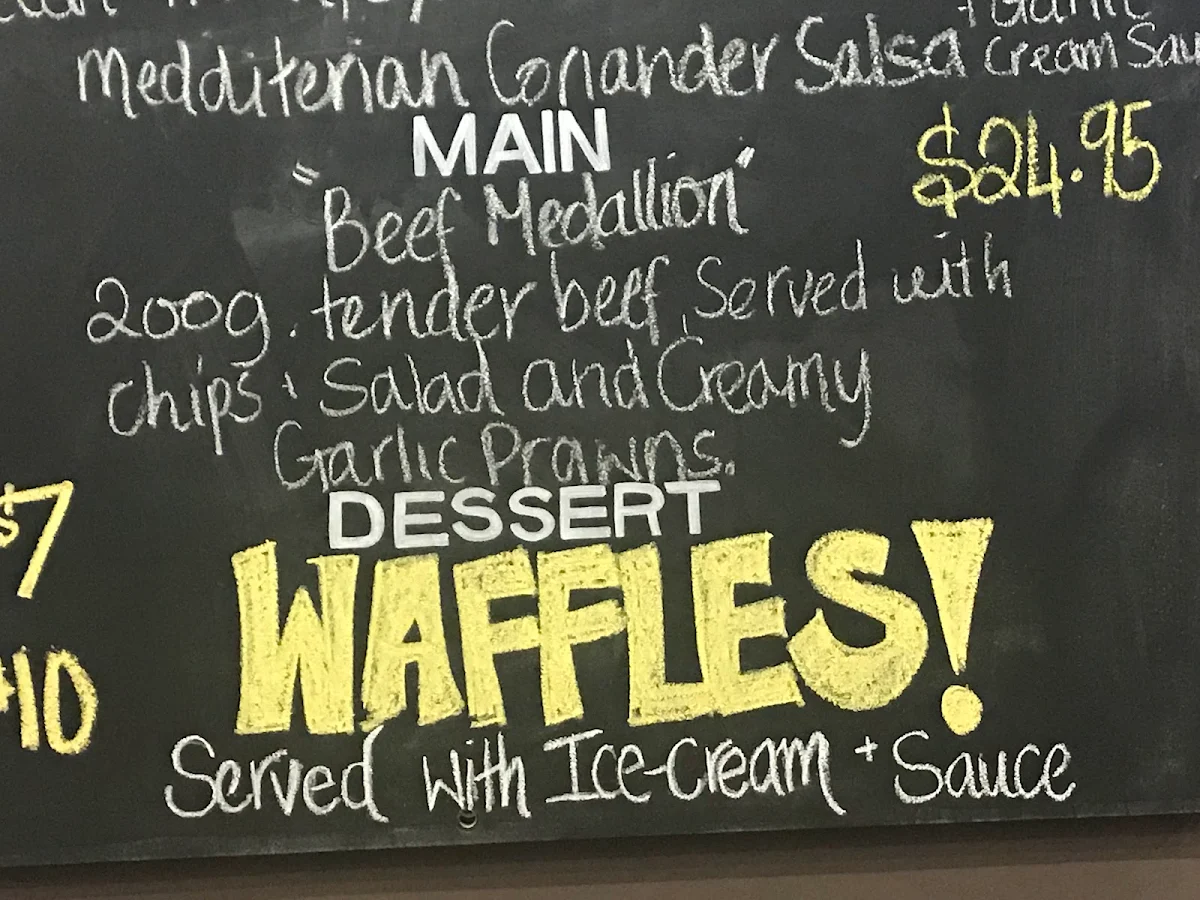 + Garlic
Medditerian Coriander Salsa Cream
MAIN
$24.95
"Beef Medallion"
200g. tender beef, Served with
chips + Salad and Creamy
Garlic Prawns.
DESSERT
$7
WAFFLES!
$10
Served with Ice-cream + Sauce